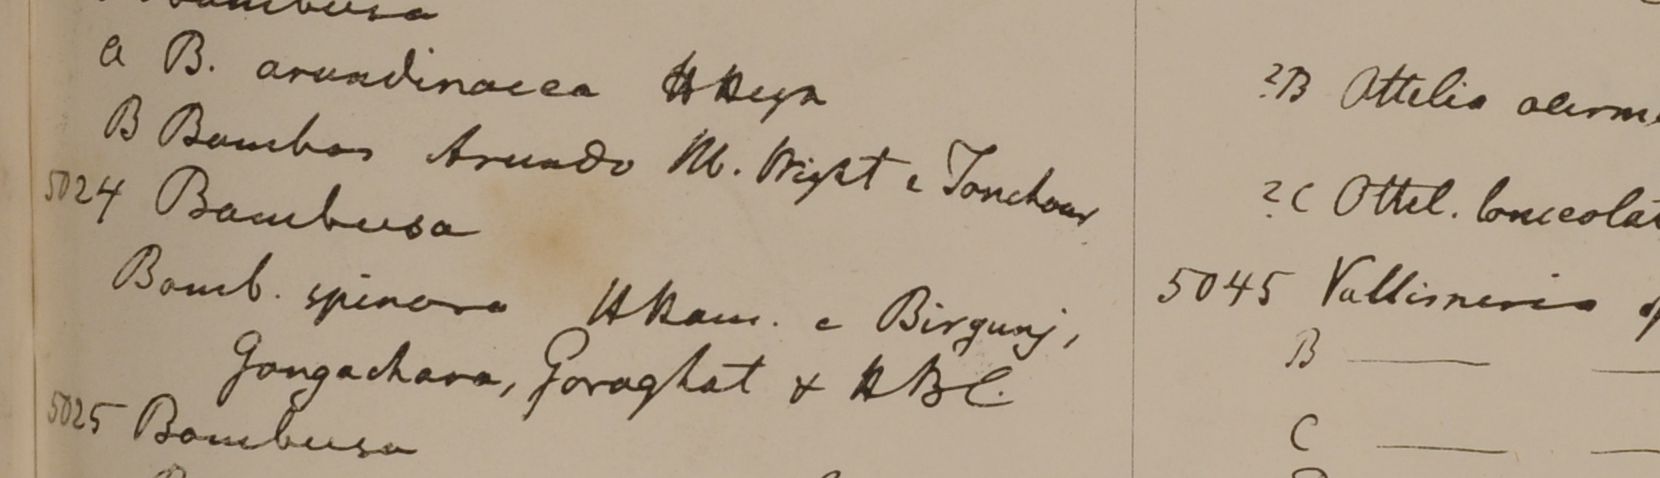 Bambusa
a B. arundinacea HHeyn
B Bambos Arundo M. Wight e Tanchour
5024 Bambusa
Bamb. spinosa HHam. e Birgunj,
Gongachara, Goraghat & HBC.
5025 Bambusa
?B Ottelia
?C Ottel. lanceolat
5045 Vallisneria
B
C